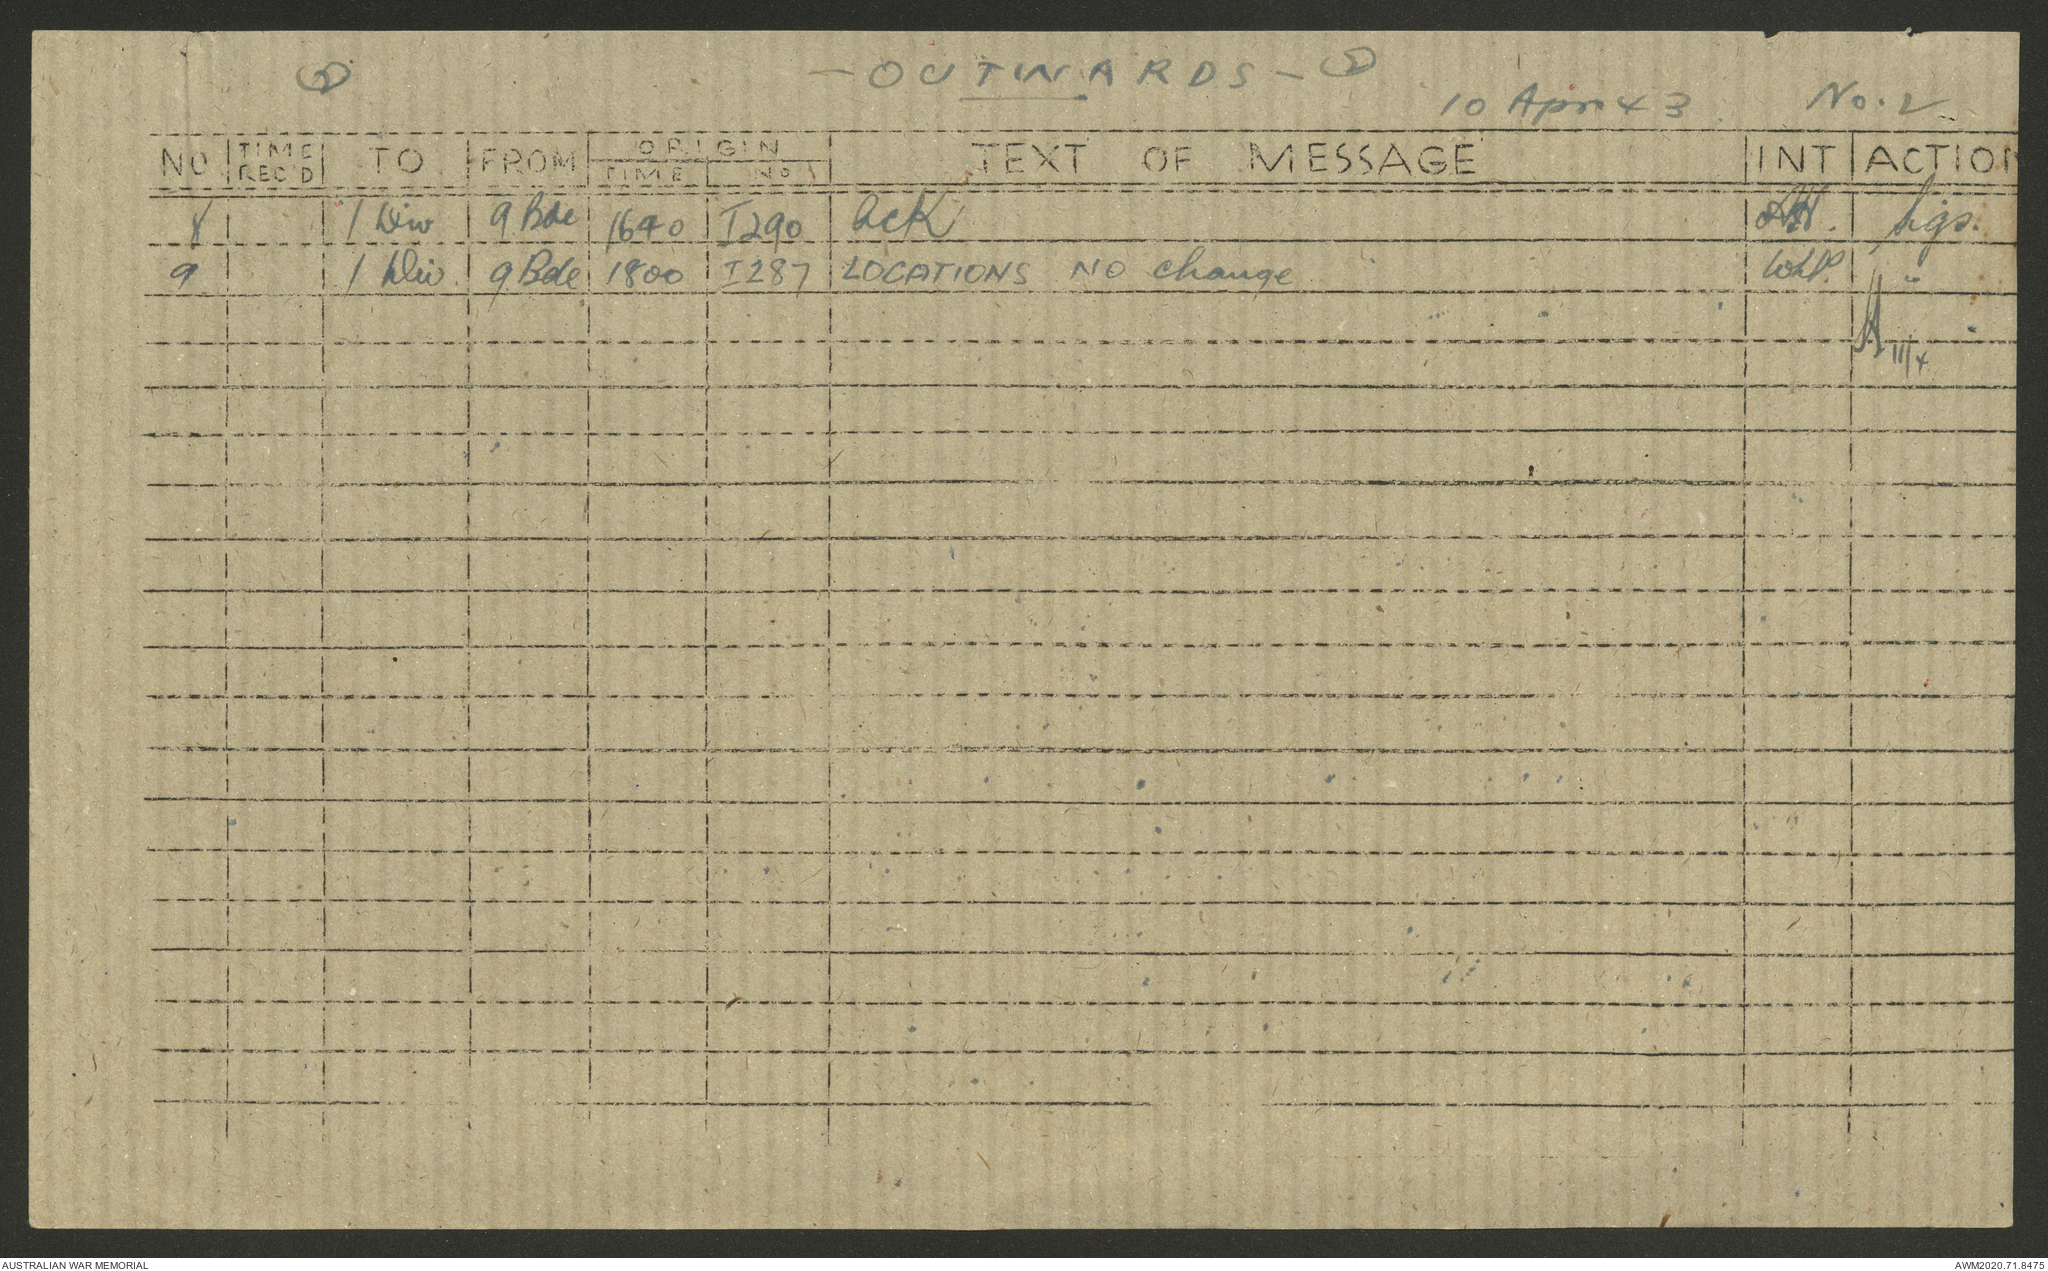 ② - OUTWARDS - ②
10 Apr 43 No. 2
NO TIME REC'D TO FROM ORIGIN TIME NO TEXT OF MESSAGE INT ACTION
8 1 Div 9 Bde 1640 I290 Ack Sigs.
9 1 Div 9 Bde 1800 I287 LOCATIONS NO change "
11/4
AUSTRALIAN WAR MEMORIAL AWM2020.71.8475